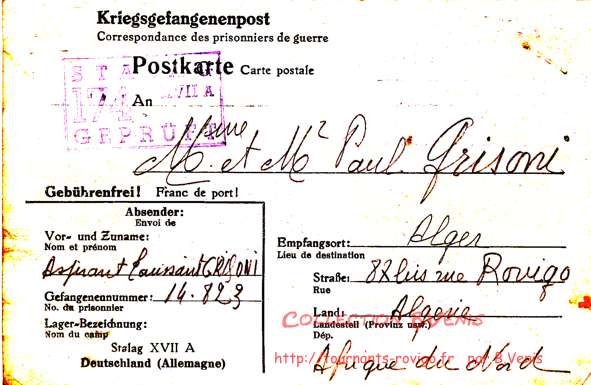 Kriegsgefangenenpost
Correspondance des prisonniers de guerre
Postkarte Carte postale
STALAG XVII A
174
GEPRÜFT
An
Mme
M. et Mr Paul Grisoni
Gebührenfrei! Franc de port!
Absender:
Envoi de
Vor- und Zuname:
Nom et prénom
Aspirant Toussaint GRISONI
Gefangenennummer: 14.823
No. du prisonnier
Lager-Bezeichnung:
Nom du camp
Stalag XVII A
Deutschland (Allemagne)
Empfangsort: Alger
Lieu de destination
Straße: 82 bis rue Rovigo
Rue
Land: Algerie
Landesteil (Provinz usw.)
Dép.
Afrique du Nord
COLLECTION B.VENIS
http://tournants-rovigo.fr par B.Venis